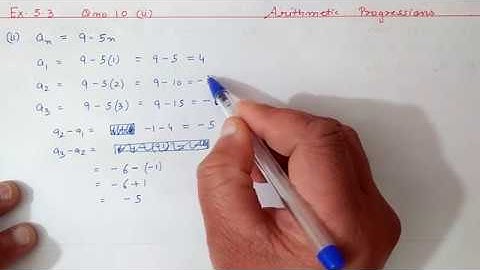 Ex. 5.3 Q no 10 (ii) Arithmetic Progressions
(ii) aₙ = 9 - 5n
a₁ = 9 - 5(1) = 9 - 5 = 4
a₂ = 9 - 5(2) = 9 - 10 = -
a₃ = 9 - 5(3) = 9 - 15 = -
a₂ - a₁ = -1 - 4 = -5
a₃ - a₂ =
= -6 - (-1)
= -6 + 1
= -5